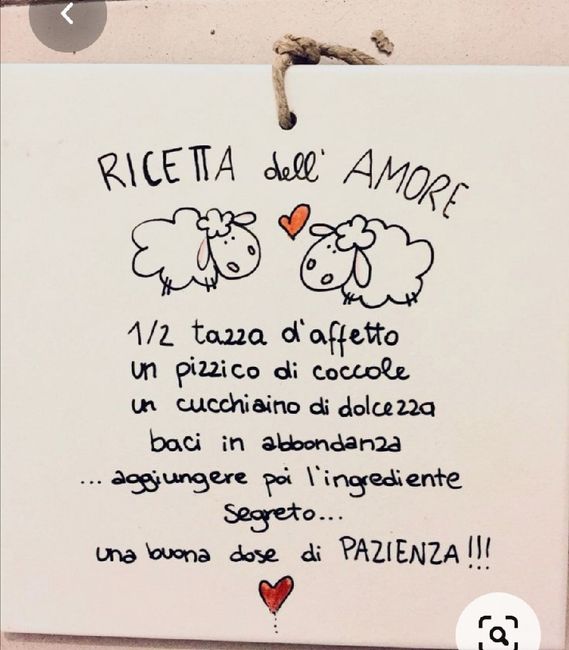 RICETTA dell' AMORE
1/2 tazza d'affetto
un pizzico di coccole
un cucchiaino di dolcezza
baci in abbondanza
... aggiungere poi l'ingrediente
segreto...
una buona dose di PAZIENZA!!!